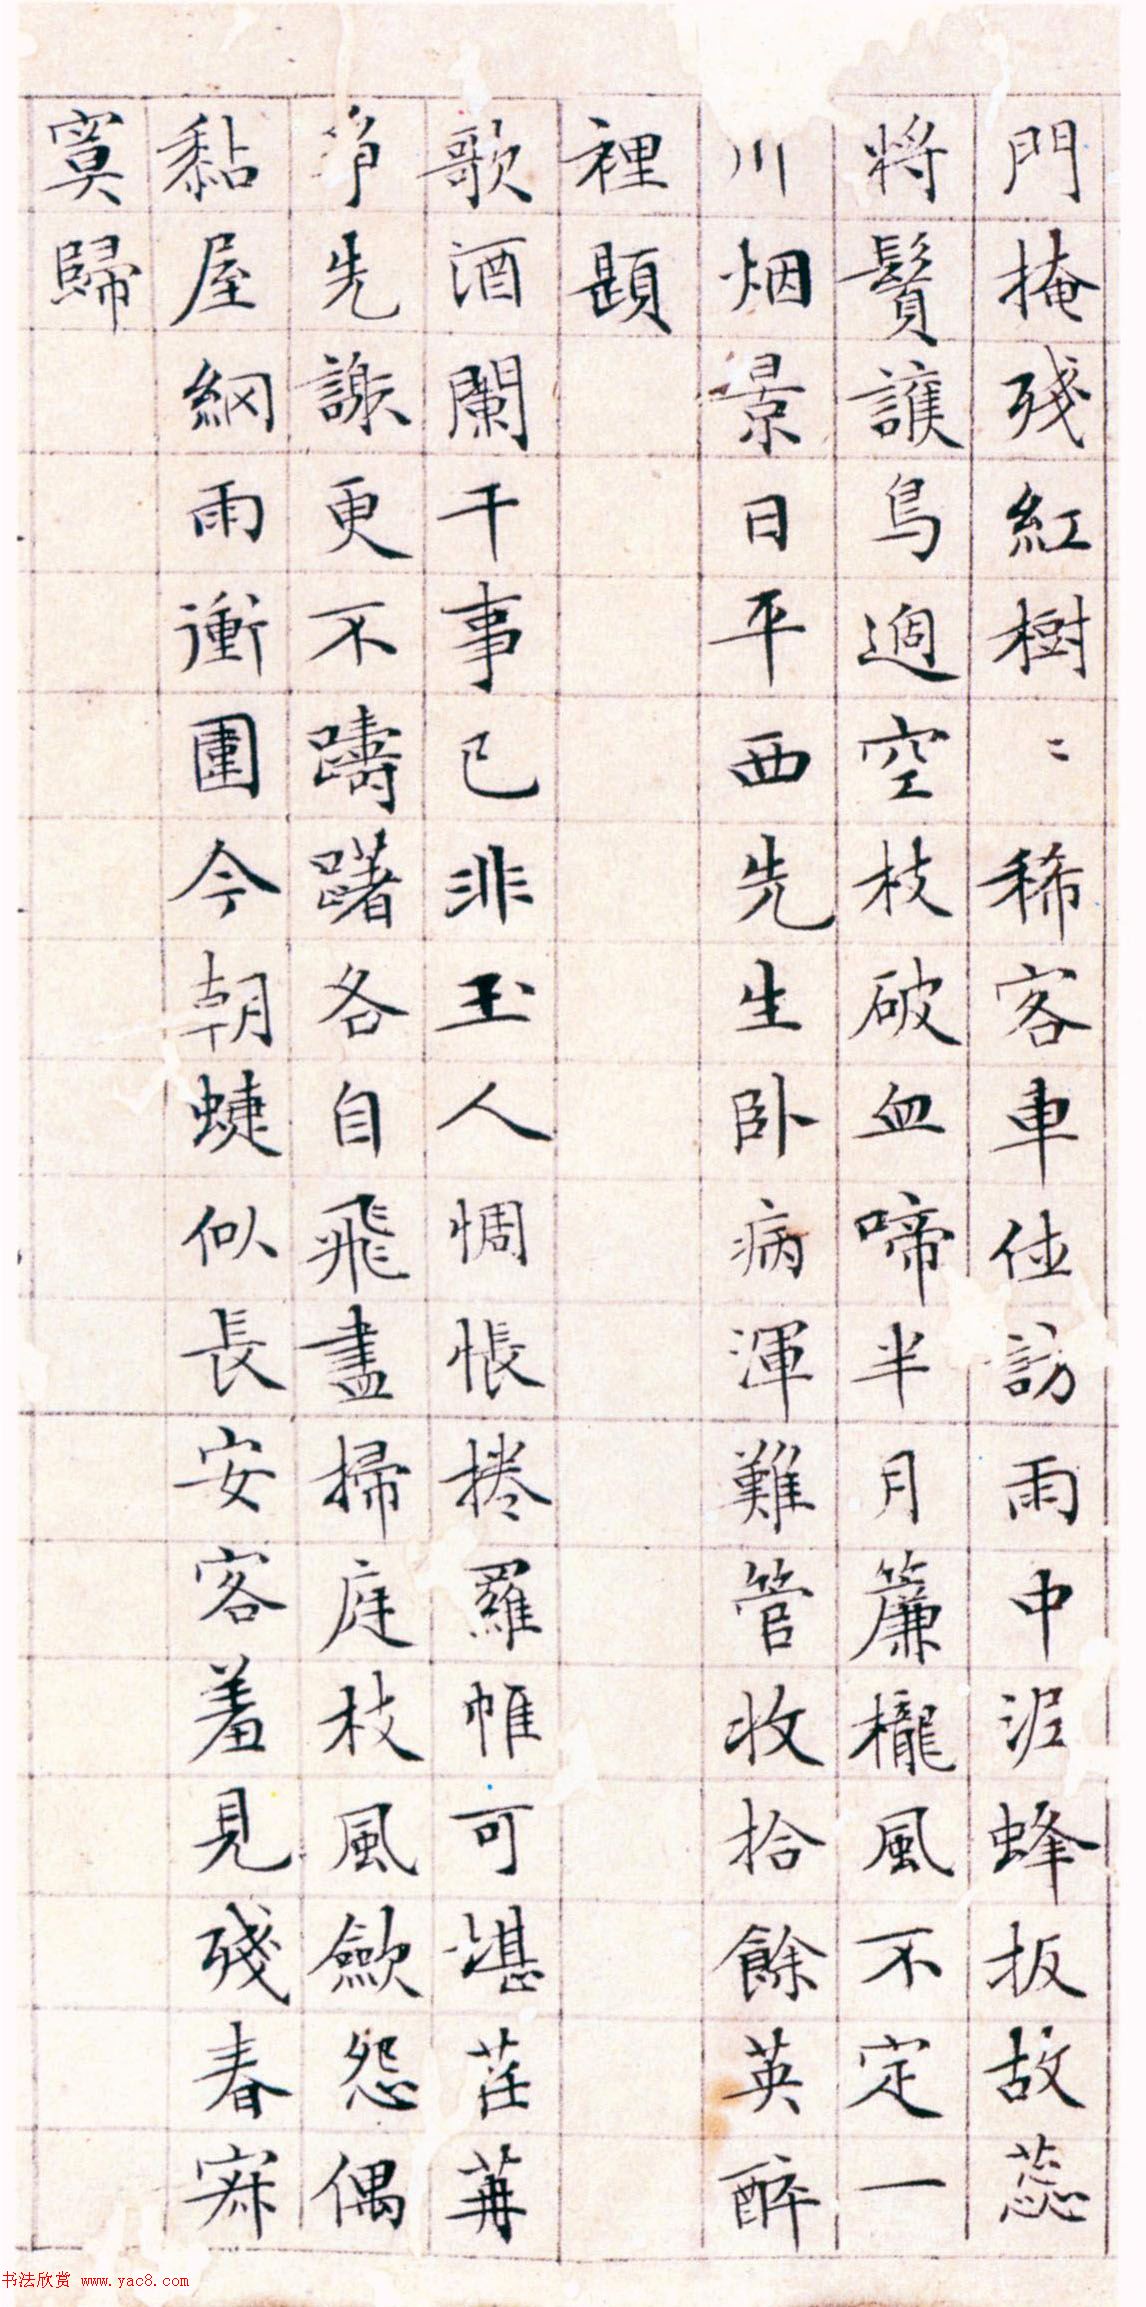 門掩殘紅樹〻稀客車位訪雨中泥蜂扳故蕊
將鬚護鳥過空枝破血啼半月簾櫳風不定一
川烟景日平西先生卧病渾難管收拾餘英醉
裡題
歌酒闌干事已非玉人惆悵捲羅帷可堪荏苒
爭先謝更不躊躇各自飛盡掃庭枝風歛怨偶
黏屋網雨衝圍今朝蜨似長安客羞見殘春寂
寞歸
书法欣赏 www.yac8.com